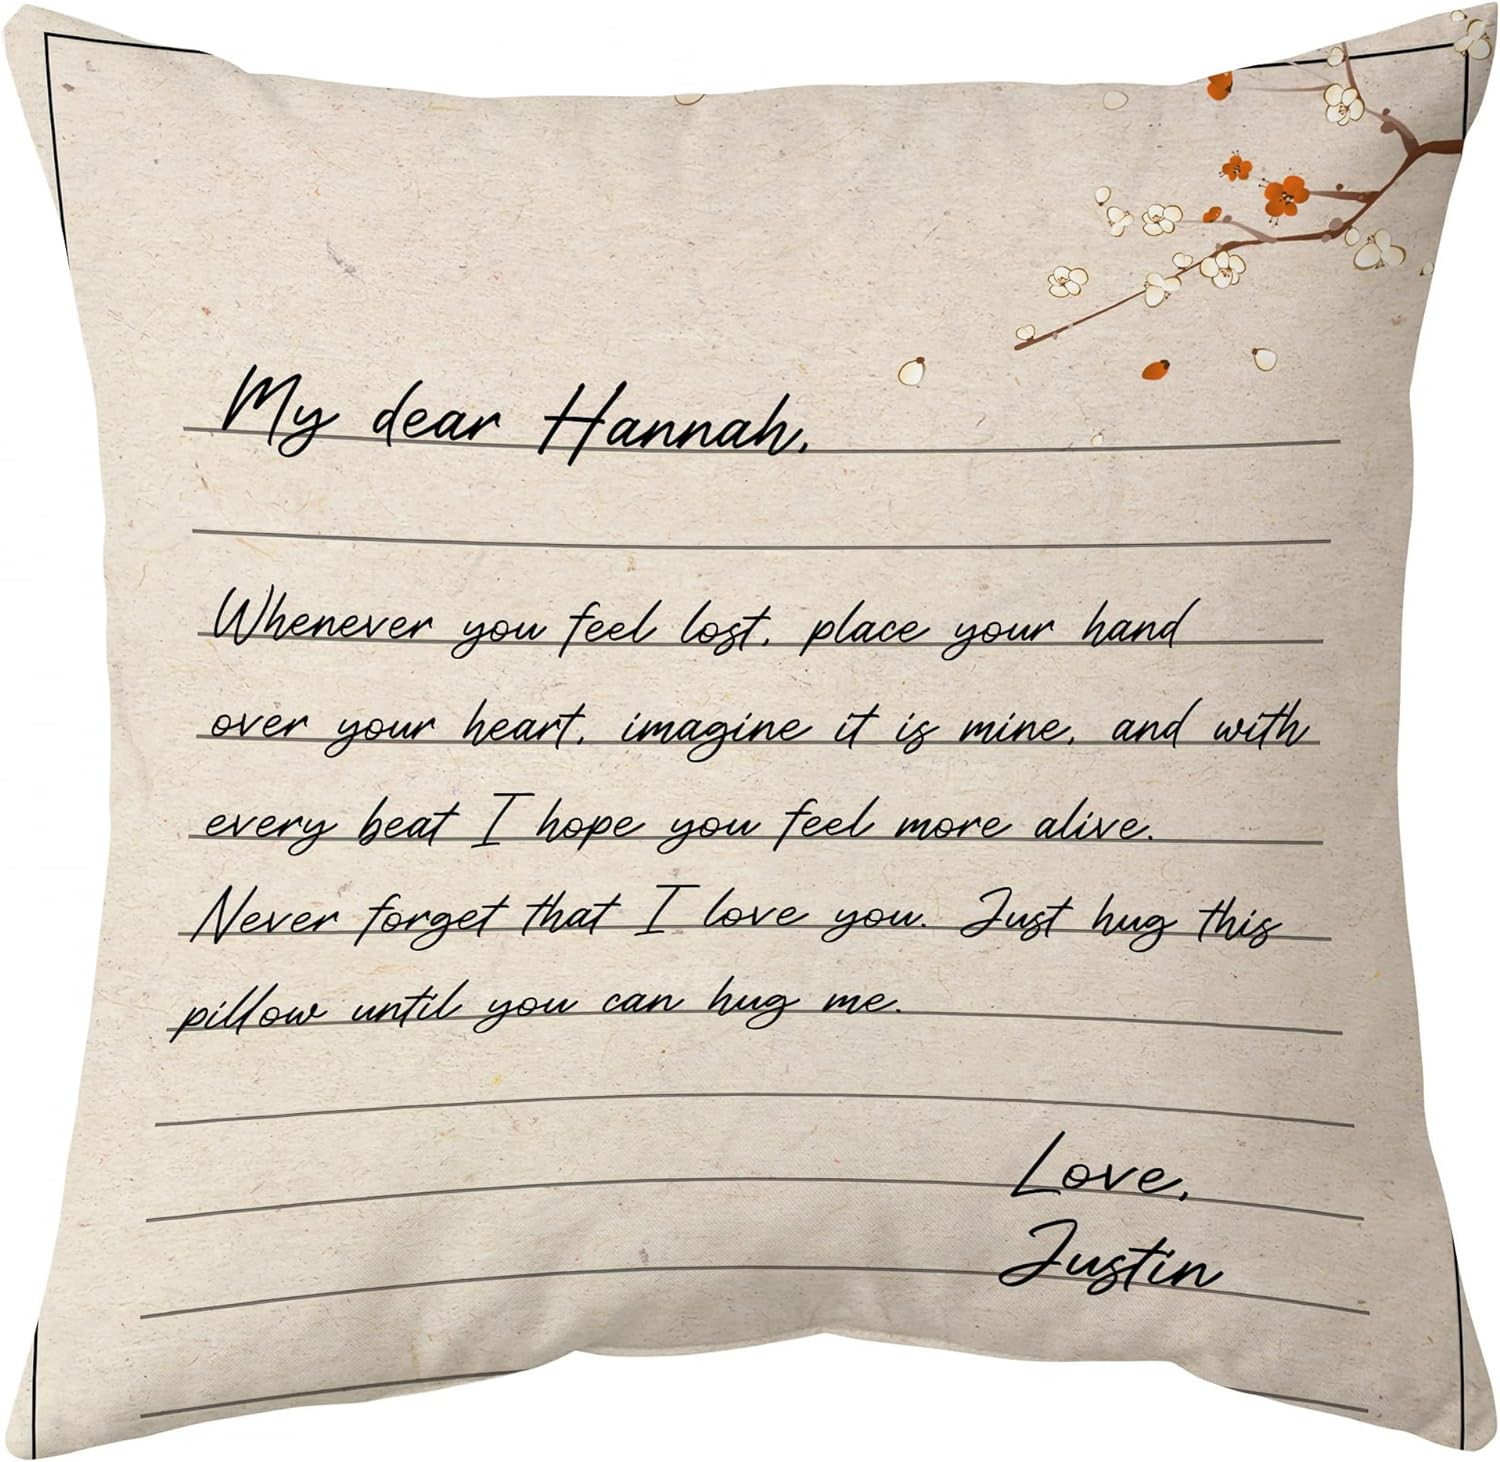 My dear Hannah,
Whenever you feel lost, place your hand
over your heart, imagine it is mine, and with
every beat I hope you feel more alive.
Never forget that I love you. Just hug this
pillow until you can hug me.
Love,
Justin